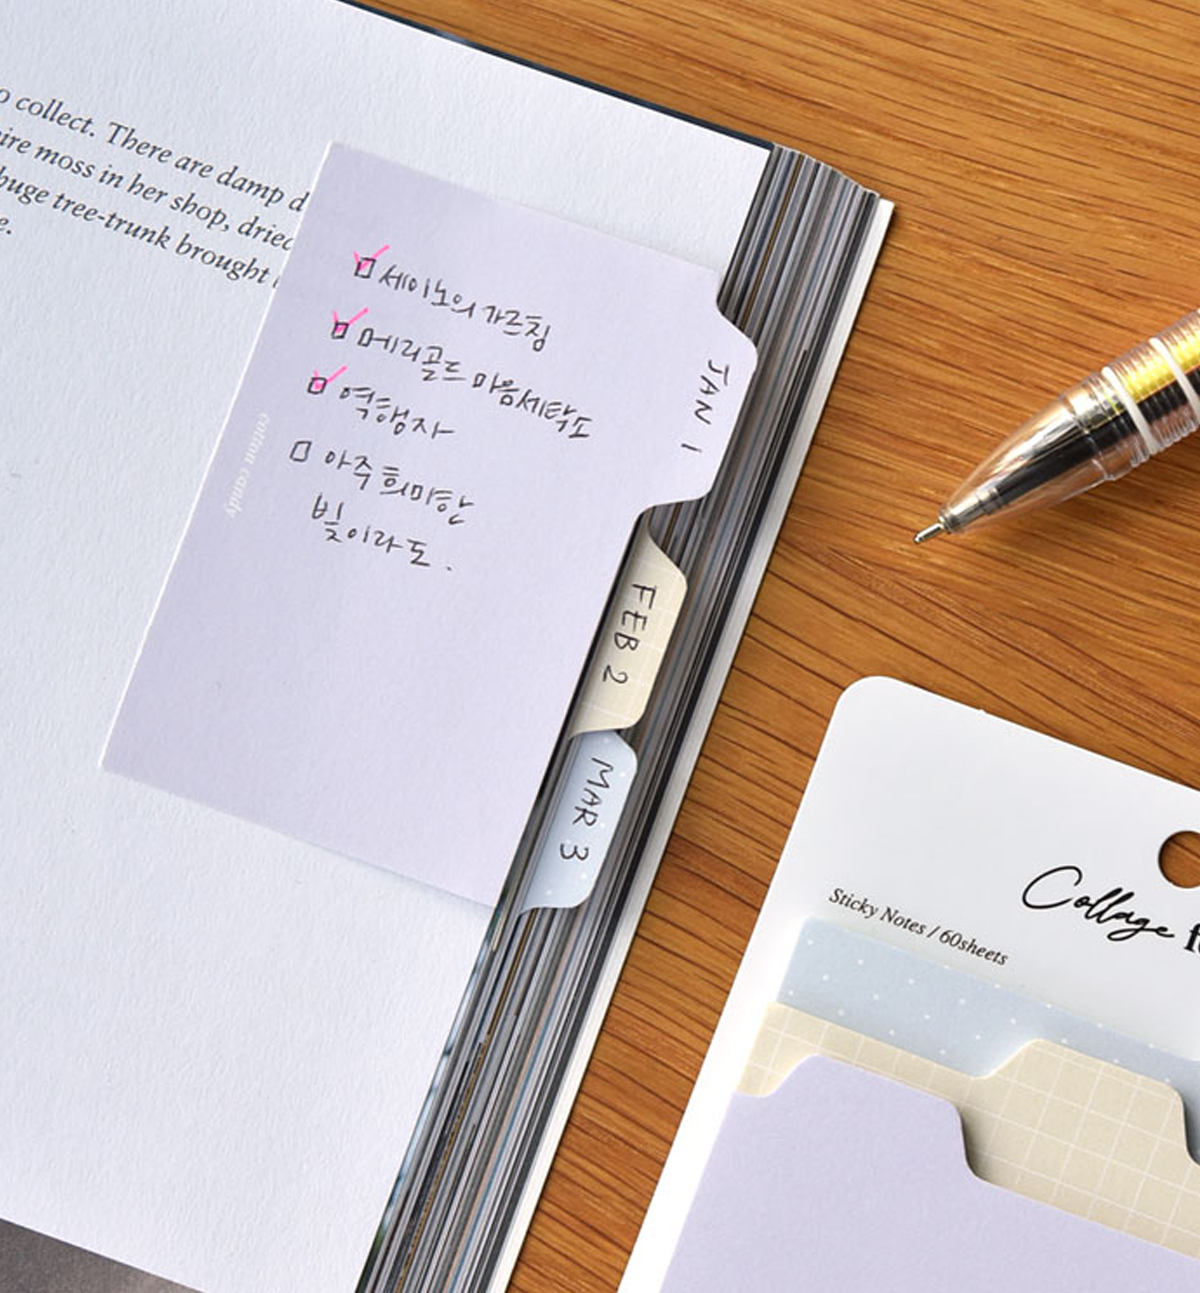 o collect. There are damp d
ire moss in her shop, dried
huge tree-trunk brought
e.
세이노의 가르침
메리골드 마음세탁소
역행자
아주 희미한
빛이라도.
cotton candy
JAN 1
FEB 2
MAR 3
Collage
Sticky Notes / 60sheets